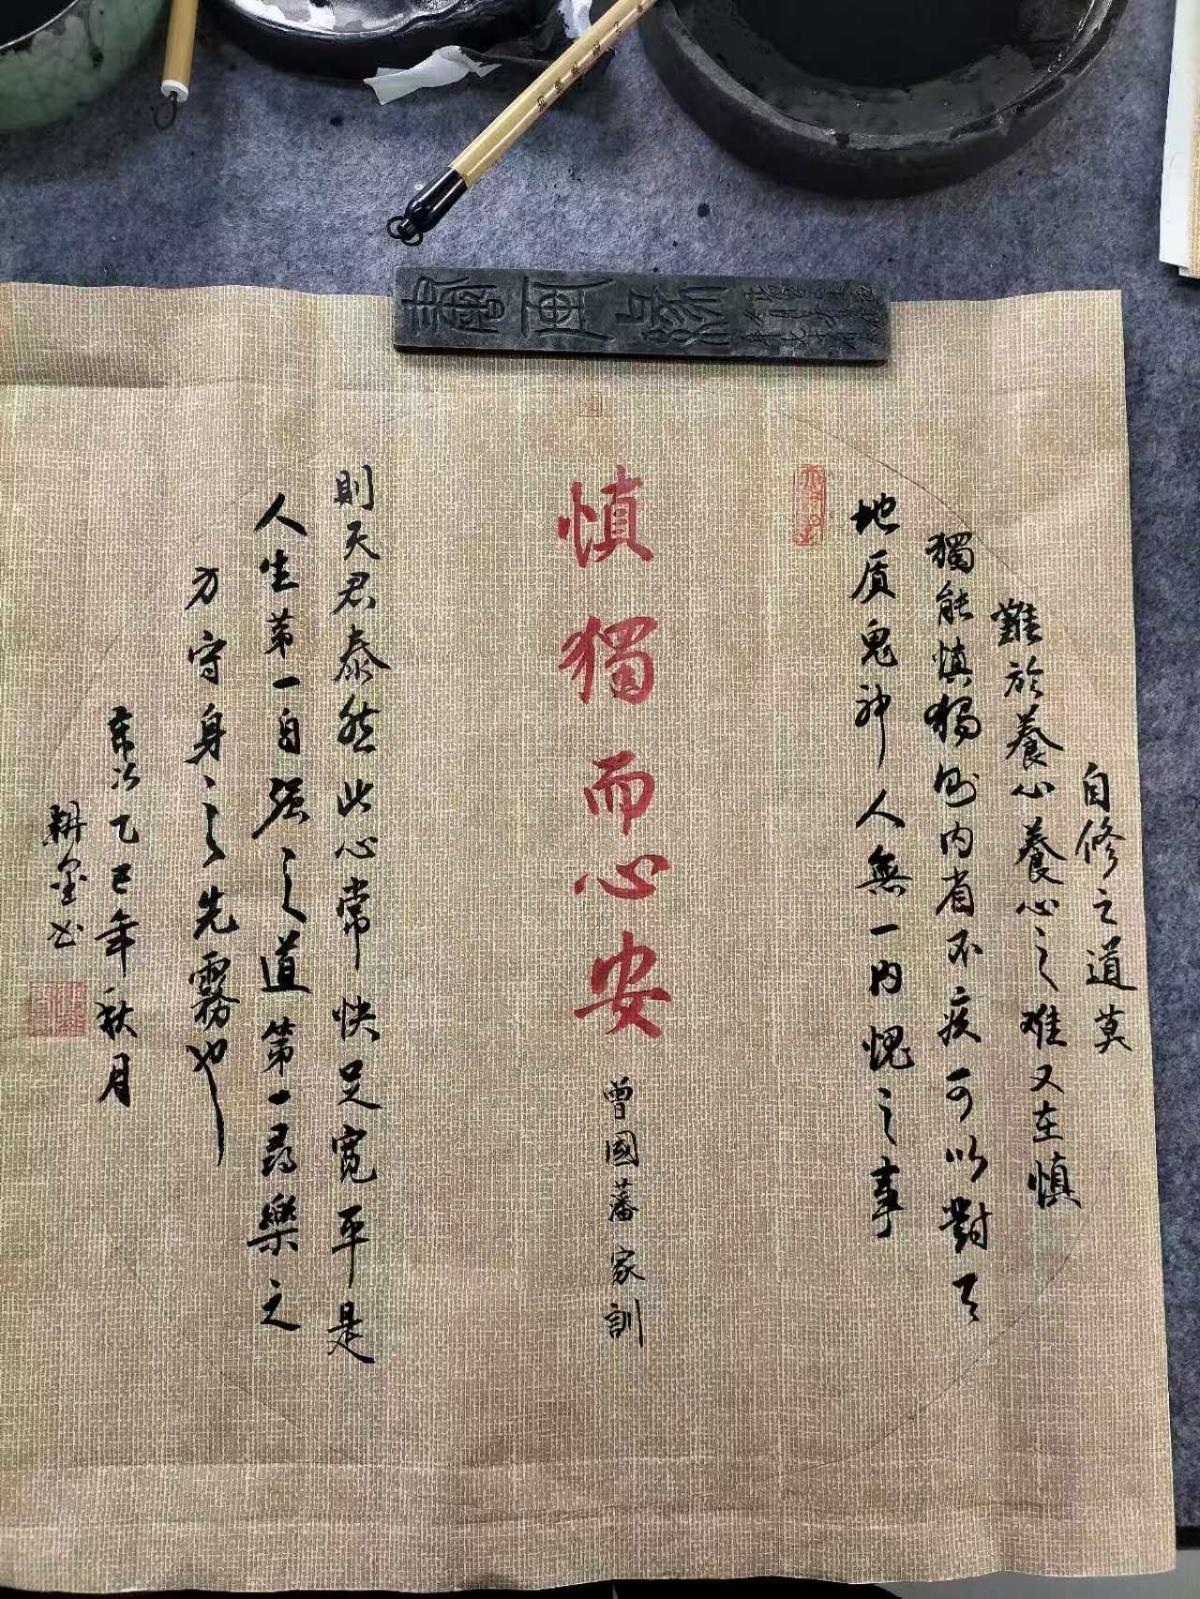 自修之道莫
難於養心養心之难又在慎
獨能慎獨則内省不疚可以對天
地质鬼神人無一内愧之事
慎獨而心安
曾國藩家訓
則天君泰然此心常快足寬平是
人生第一自强之道第一尋樂之
方守身之先務也
乙巳年秋月
耕